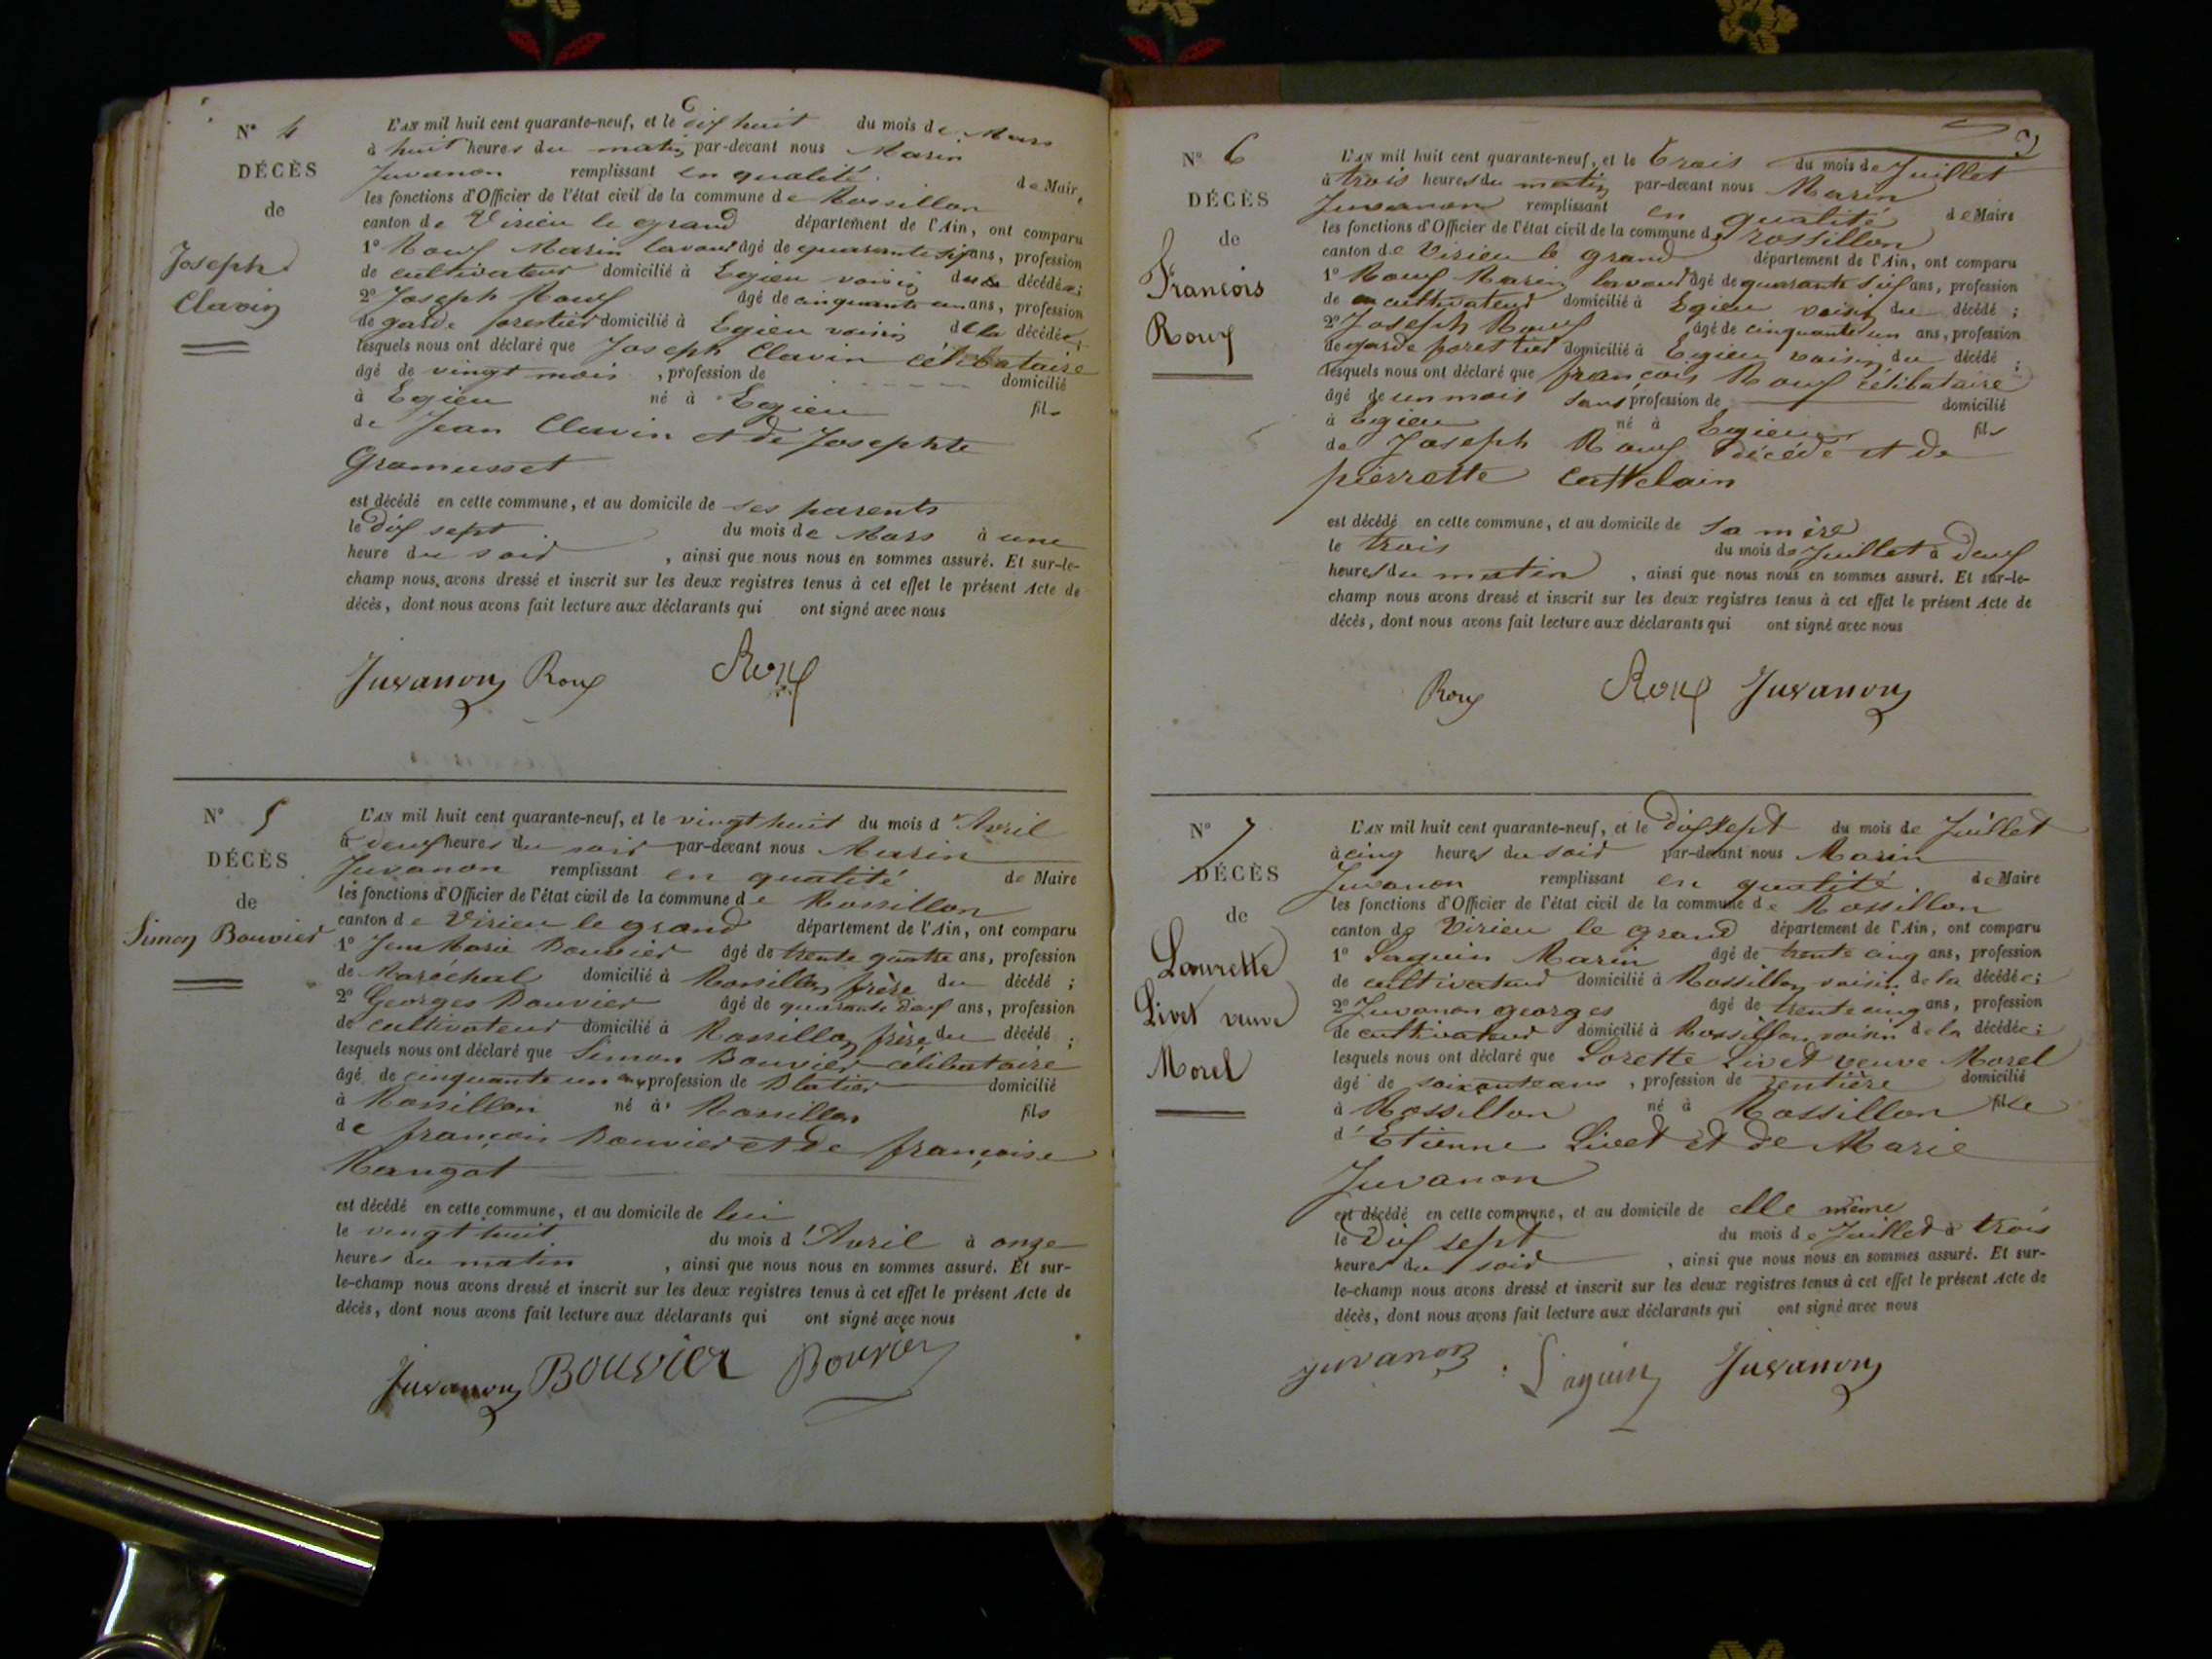 N° 4
DÉCÈS
de
Joseph
Clavin
L'AN mil huit cent quarante-neuf, et le dix huit du mois de Mars
à huit heures du matin par-devant nous Marin
Juvanon remplissant en qualité de Maire
les fonctions d'Officier de l'état civil de la commune de Rossillon
canton de Virieu le grand département de l'Ain, ont comparu
1° Roux Marin lavaud âgé de quarante six ans, profession
de cultivateur domicilié à Egieu voisin du décédé;
2° Joseph Roux âgé de cinquante un ans, profession
de garde forestier domicilié à Egieu voisin de la décédée,
lesquels nous ont déclaré que Joseph Clavin célibataire
âgé de vingt mois , profession de domicilié
à Egieu né à Egieu fils
de Jean Clavin et de Josephte
Gramusset
est décédé en cette commune, et au domicile de ses parents
le dix sept du mois de Mars à une
heure du soir , ainsi que nous nous en sommes assuré. Et sur-le-
champ nous avons dressé et inscrit sur les deux registres tenus à cet effet le présent Acte de
décès, dont nous avons fait lecture aux déclarants qui ont signé avec nous
Juvanon Roux Roux
N° 5
DÉCÈS
de
Simon Bouvier
L'AN mil huit cent quarante-neuf, et le vingt huit du mois d'Avril
à deux heures du soir par-devant nous Marin
Juvanon remplissant en qualité de Maire
les fonctions d'Officier de l'état civil de la commune de Rossillon
canton de Virieu le grand département de l'Ain, ont comparu
1° Jean Marie Bouvier âgé de trente quatre ans, profession
de Maréchal domicilié à Rossillon frère du décédé ;
2° Georges Bouvier âgé de quarante deux ans, profession
de cultivateur domicilié à Rossillon frère du décédé ;
lesquels nous ont déclaré que Simon Bouvier célibataire
âgé de cinquante un ans profession de Blatier domicilié
à Rossillon né à Rossillon fils
de françois Bouvier et de françoise
Mangot
est décédé en cette commune, et au domicile de lui
le vingt huit du mois d'Avril à onze
heures du matin , ainsi que nous nous en sommes assuré. Et sur-
le-champ nous avons dressé et inscrit sur les deux registres tenus à cet effet le présent Acte de
décès, dont nous avons fait lecture aux déclarants qui ont signé avec nous
Juvanon Bouvier Bouvier
3
N° 6
DÉCÈS
de
François
Roux
L'AN mil huit cent quarante-neuf, et le trois du mois de Juillet
à trois heures du matin par-devant nous Marin
Juvanon remplissant en qualité de Maire
les fonctions d'Officier de l'état civil de la commune de rossillon
canton de Virieu le grand département de l'Ain, ont comparu
1° Roux Marin lavaud âgé de quarante six ans, profession
de cultivateur domicilié à Egieu voisin du décédé ;
2° Joseph Roux âgé de cinquante un ans, profession
de garde forestier domicilié à Egieu voisin du décédé ;
lesquels nous ont déclaré que françois Roux célibataire
âgé de un mois sans profession de domicilié
à Egieu né à Egieu fils
de Joseph Roux décédé et de
pierrette Cattelain
est décédé en cette commune, et au domicile de sa mère
le trois du mois de Juillet à deux
heures du matin , ainsi que nous nous en sommes assuré. Et sur-le-
champ nous avons dressé et inscrit sur les deux registres tenus à cet effet le présent Acte de
décès, dont nous avons fait lecture aux déclarants qui ont signé avec nous
Roux Roux Juvanon
N° 7
DÉCÈS
de
Laurette
Livet veuve
Morel
L'AN mil huit cent quarante-neuf, et le dix sept du mois de Juillet
à cinq heures du soir par-devant nous Marin
Juvanon remplissant en qualité de Maire
les fonctions d'Officier de l'état civil de la commune de Rossillon
canton de Virieu le grand département de l'Ain, ont comparu
1° Laguin Marin âgé de trente cinq ans, profession
de cultivateur domicilié à Rossillon voisin de la décédée;
2° Juvanon georges âgé de trente cinq ans, profession
de cultivateur domicilié à Rossillon voisin de la décédée;
lesquels nous ont déclaré que Lorette Livet veuve Morel
âgé de soixante ans , profession de rentière domicilié
à Rossillon né à Rossillon fille
d'Etienne Livet et de Marie
Juvanon
est décédé en cette commune, et au domicile de elle même
le dix sept du mois de Juillet à trois
heures du soir , ainsi que nous nous en sommes assuré. Et sur-
le-champ nous avons dressé et inscrit sur les deux registres tenus à cet effet le présent Acte de
décès, dont nous avons fait lecture aux déclarants qui ont signé avec nous
juvanon Laguin Juvanon